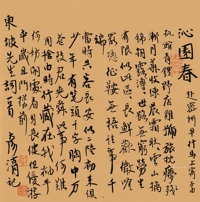 沁園春
赴密州早行馬上寄子由
孤館燈青野店雞號旅枕夢殘
漸月華收練晨霜耿耿雲山摛
錦朝露漙漙世路無窮勞生
有限似此區區長鮮歡微吟
罷憑征鞍無語往事千端
當時共客長安似二陸初來俱
少年有筆頭千字胸中萬
卷致君堯舜此事何難
用舍由時行藏在我袖手
何妨閒處看身長健但優游
卒歲且鬥尊前
東坡先生詞